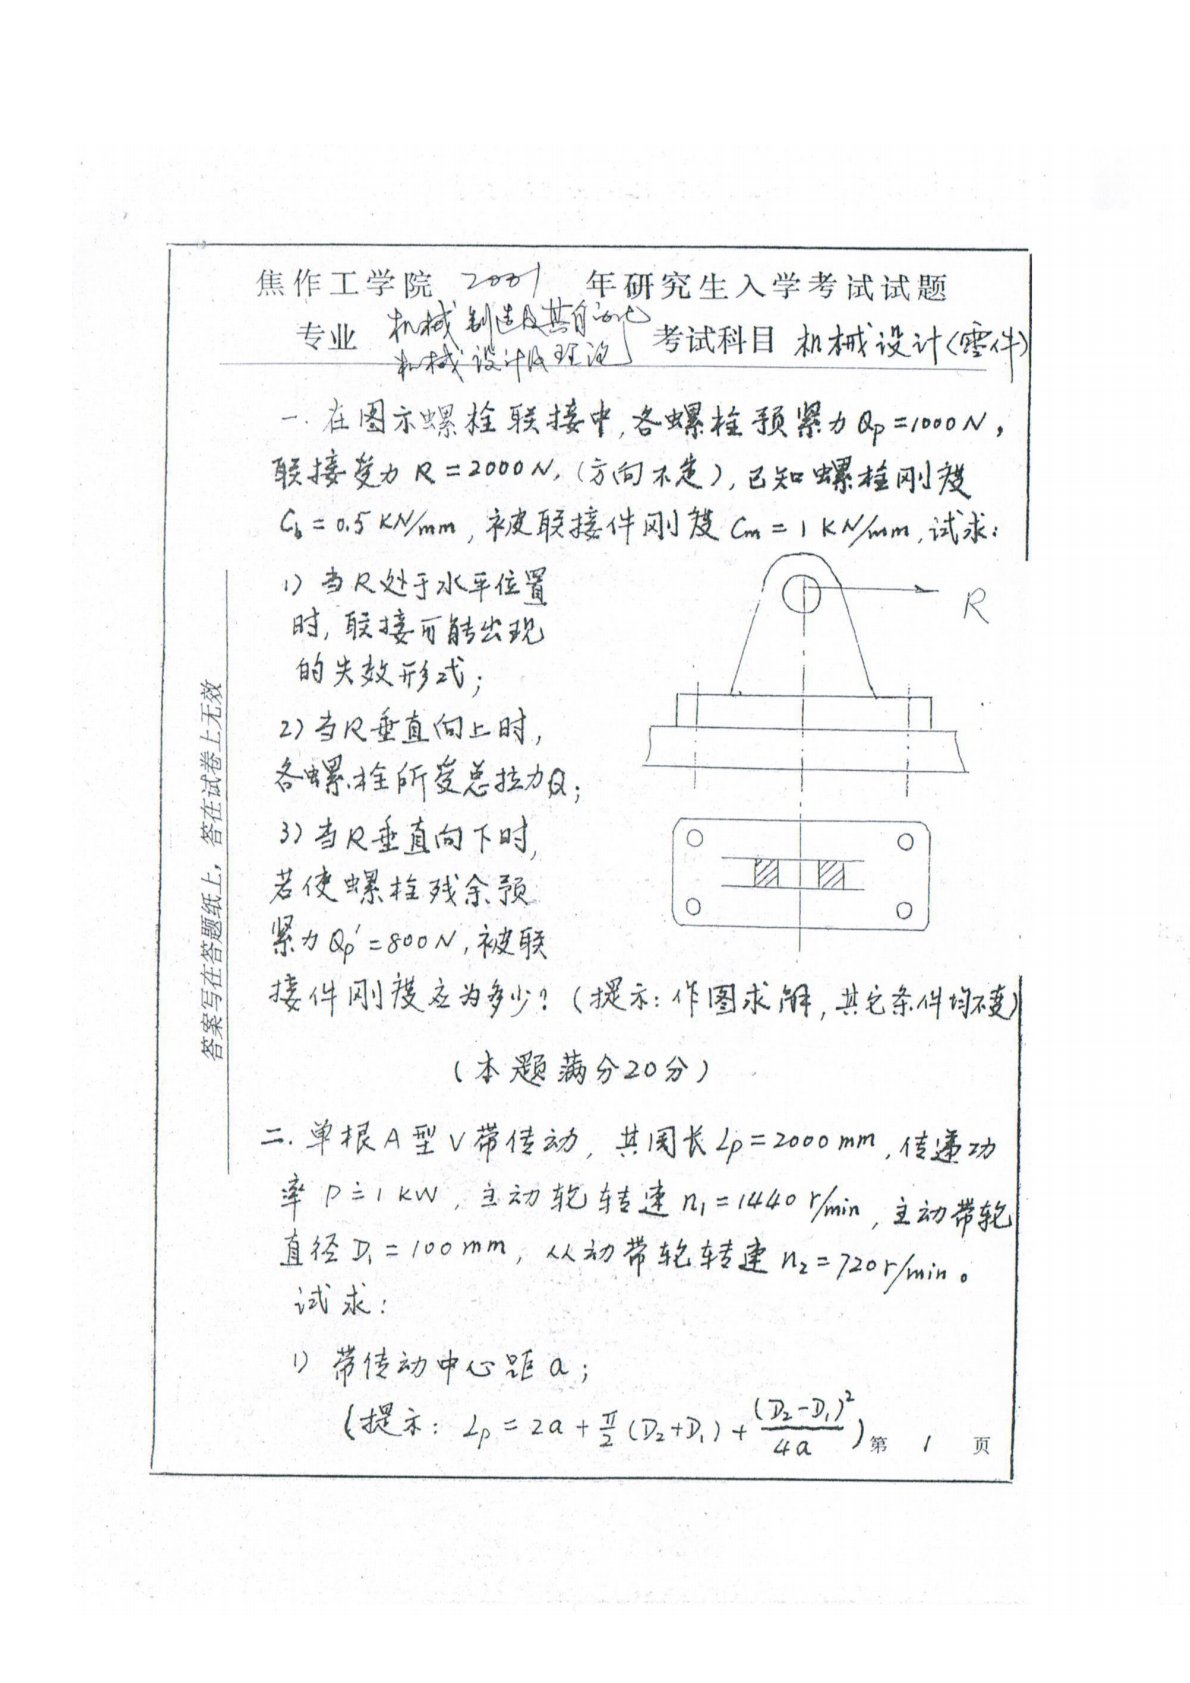 焦作工学院 2001 年研究生入学考试试题
专业 机械制造及其自动化 考试科目 机械设计(零件)
机械设计及理论
一.在图示螺栓联接中,各螺栓预紧力Qp=1000N,
联接受力R=2000N,(方向不定),已知螺栓刚度
Cb=0.5KN/mm,被联接件刚度Cm=1KN/mm,试求:
1)当R处于水平位置
时,联接可能出现
的失效形式;
2)当R垂直向上时,
各螺栓所受总拉力Q;
3)当R垂直向下时,
若使螺栓残余预
紧力Qp'=800N,被联
接件刚度应为多少?(提示:作图求解,其它条件均不变)
R
(本题满分20分)
二.单根A型V带传动,其周长Lp=2000mm,传递功
率P=1KW,主动轮转速n₁=1440r/min,主动带轮
直径D₁=100mm,从动带轮转速n₂=720r/min。
试求:
1)带传动中心距a;
(提示:Lp=2a+π/2(D₂+D₁)+(D₂-D₁)²/4a)
第 1 页
答案写在答题纸上,答在试卷上无效